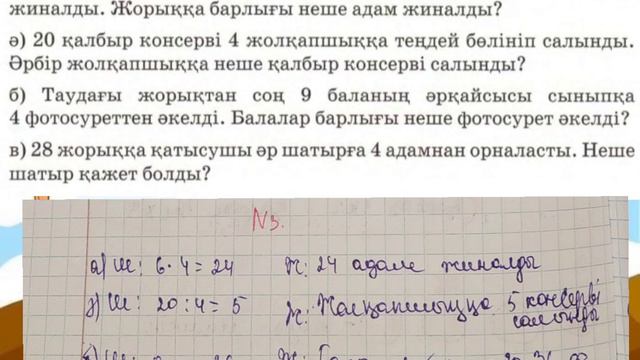 жиналды. Жорыққа барлығы неше адам жиналды?
ә) 20 қалбыр консерві 4 жолқапшыққа теңдей бөлініп салынды.
Әрбір жолқапшыққа неше қалбыр консерві салынды?
б) Таудағы жорықтан соң 9 баланың әрқайсысы сыныпқа
4 фотосуреттен әкелді. Балалар барлығы неше фотосурет әкелді?
в) 28 жорыққа қатысушы әр шатырға 4 адамнан орналасты. Неше
шатыр қажет болды?
N3.
а) Ш: 6·4=24 Ж: 24 адам жиналды
ә) Ш: 20:4=5 Ж: Жолқапшыққа 5 консерві
салынды